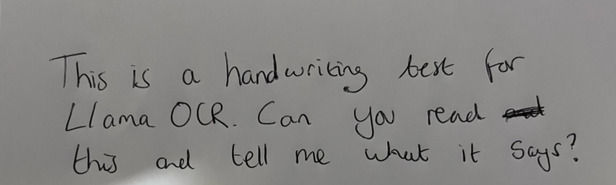 This is a handwriting test for
Llama OCR. Can you read
this and tell me what it says?